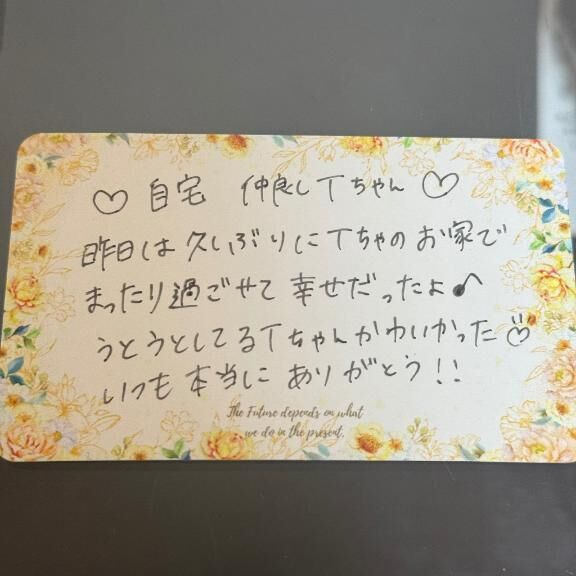 ♡ 自宅 仲良しTちゃん ♡
昨日は久しぶりにTちゃのお家で
まったり過ごせて幸せだったよ♪
うとうとしてるTちゃんかわいかった
いつも本当にありがとう!!
The Future depends on what
we do in the present.